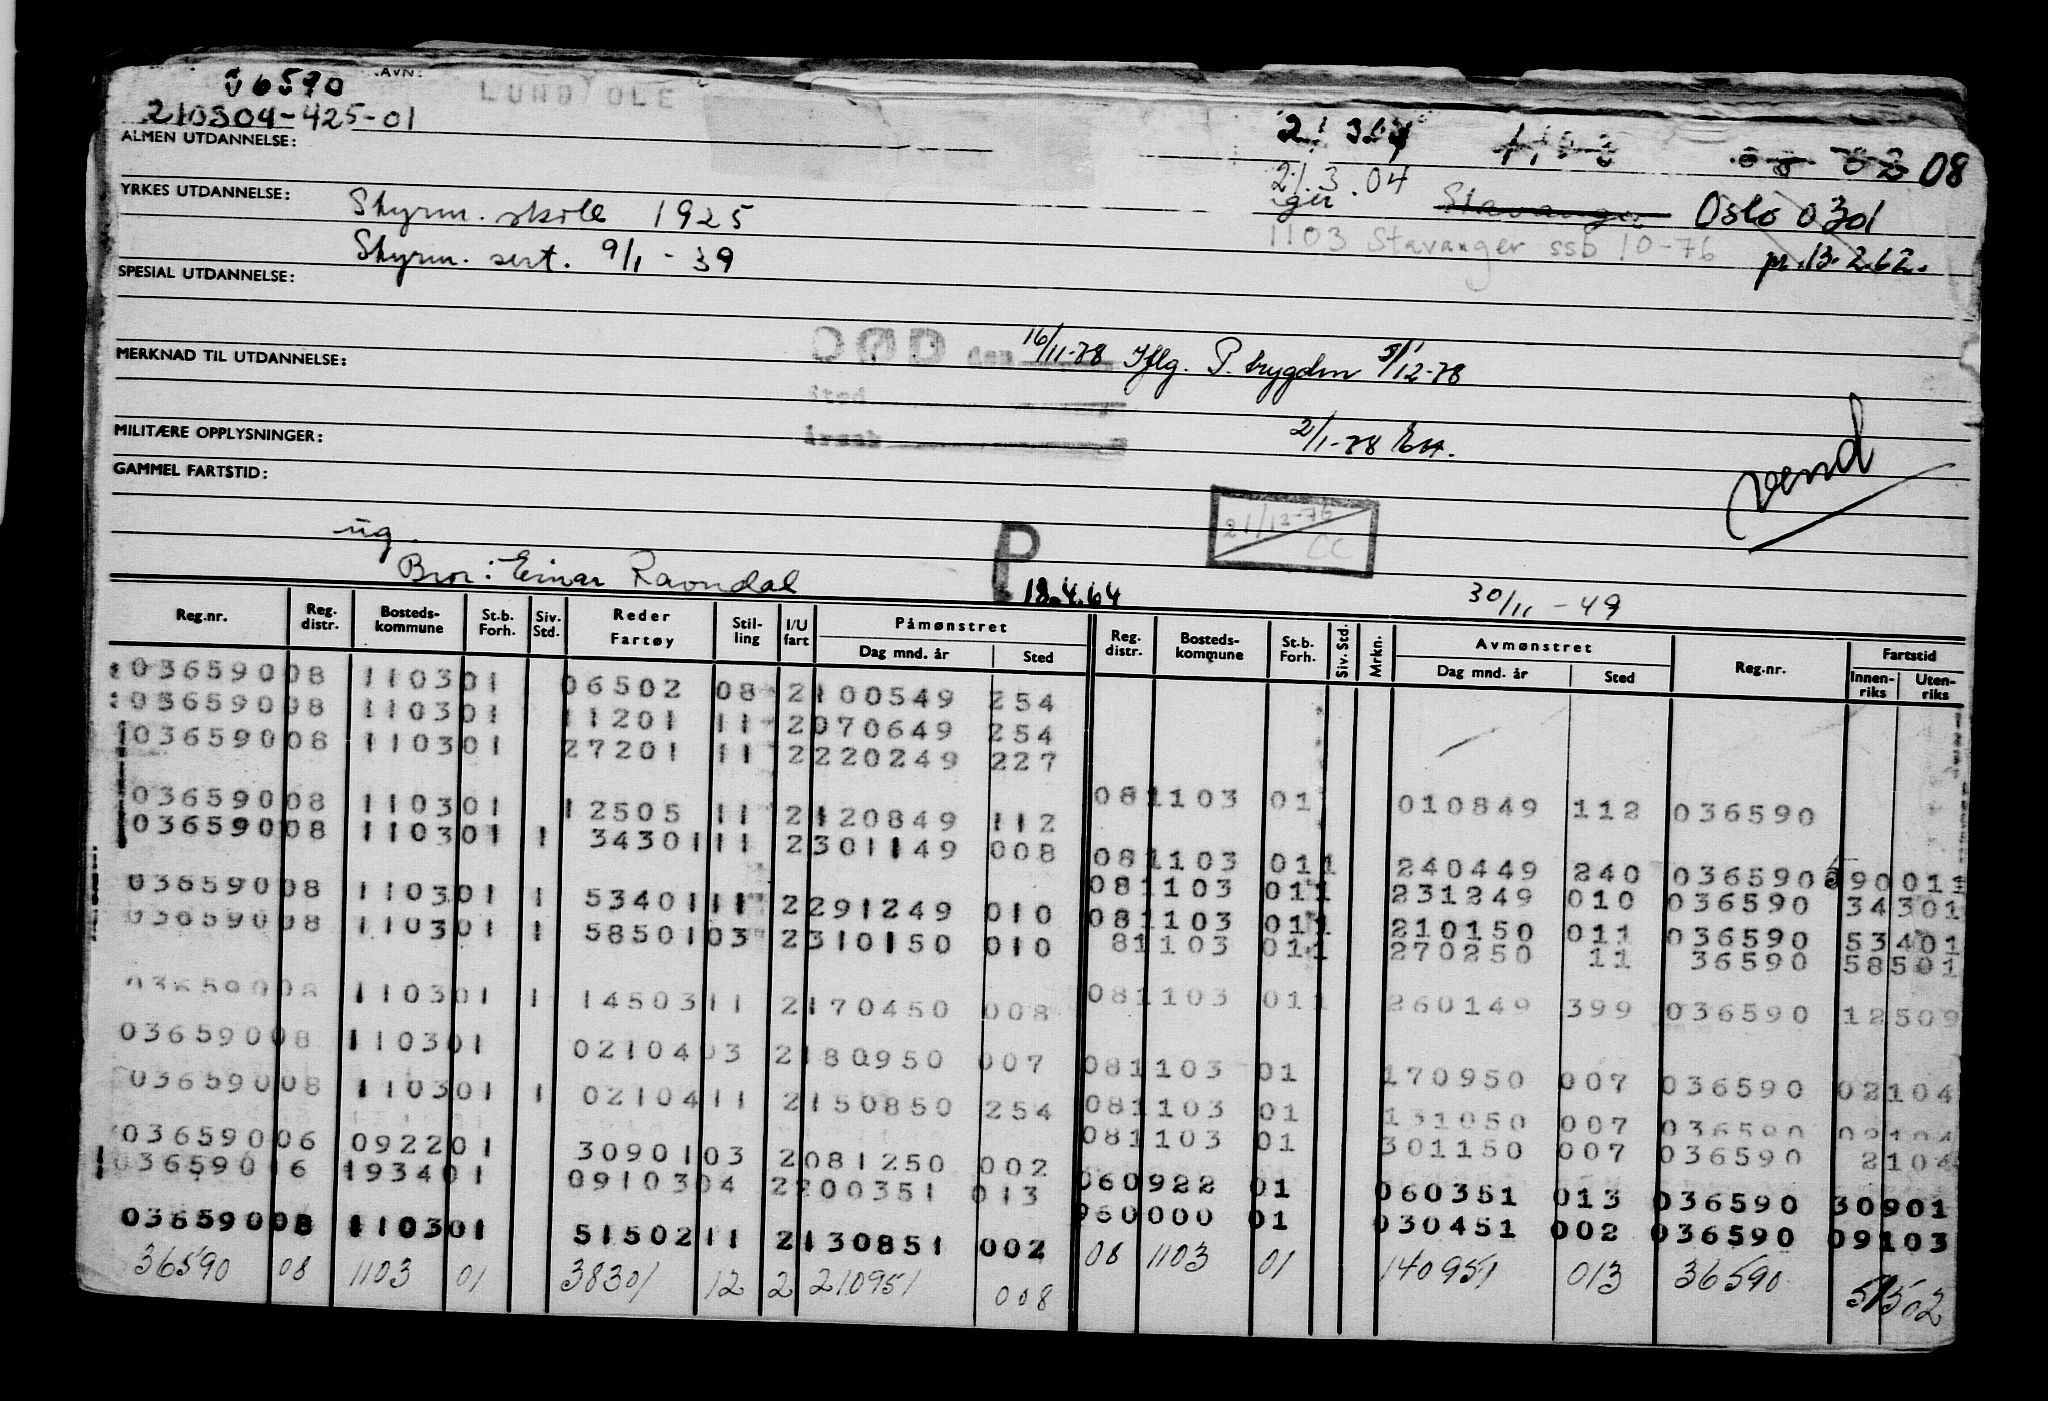 36590 AVN: LUND OLE
210304-425-01
ALMEN UTDANNELSE: 21 3 04 08
21.3.04
YRKES UTDANNELSE: Styrm. skole 1925 ger Stavanger Oslo 0301
Styrm. sert. 9/1 - 39 1103 Stavanger ssb 10-76 pr. 13.2.62.
SPESIAL UTDANNELSE:
MERKNAD TIL UTDANNELSE: DØD den 16/11-78 Iflg. P. trygden 5/12-78
Sted
MILITÆRE OPPLYSNINGER: årsak 2/1-78
GAMMEL FARTSTID: vend
ug. P 21/12-76 CC
Bror: Einar Ravndal 18.4.64 30/11 - 49
Reg.nr. Reg. distr. Bosteds- kommune St.b. Forh. Siv. Std. Reder Fartøy Stil- ling I/U fart Påmønstret Dag mnd. år Sted Reg. distr. Bosteds- kommune St.b. Forh. Siv. Std. Mrkn. Avmønstret Dag mnd. år Sted Reg.nr. Fartstid Innen- riks Uten- riks
036590 08 1103 01 06502 08 2 100549 254
036590 08 1103 01 11201 11 2 070649 254
036590 08 1103 01 27201 11 2 220249 227
036590 08 1103 01 12505 11 2 120849 112 08 1103 01 010849 112 036590
036590 08 1103 01 1 34301 11 2 301149 008 08 1103 01 1 240449 240 036590 59001
036590 08 1103 01 1 53401 11 2 291249 010 08 1103 01 1 231249 010 036590 34301
036590 08 1103 01 1 58501 03 2 310150 010 08 1103 01 1 210150 011 036590 53401
8 1103 01 1 270250 11 36590 58501
036590 08 1103 01 1 14503 11 2 170450 008 08 1103 01 1 260149 399 036590 12509
036590 08 1103 01 02104 03 2 180950 007 08 1103 01 170950 007 036590 02104
036590 08 1103 01 1 02104 11 2 150850 254 08 1103 01 131050 007 036590 02104
08 1103 01 301150 007 036590 2104
036590 06 0922 01 30901 03 2 081250 002 06 0922 01 060351 013 036590 30901
036590 16 1934 01 09103 04 2 200351 013 96 0000 01 030451 002 036590 09103
036590 08 1103 01 51502 11 2 130851 002 08 1103 01 140951 013 36590 51502
36590 08 1103 01 38301 12 2 210951 008